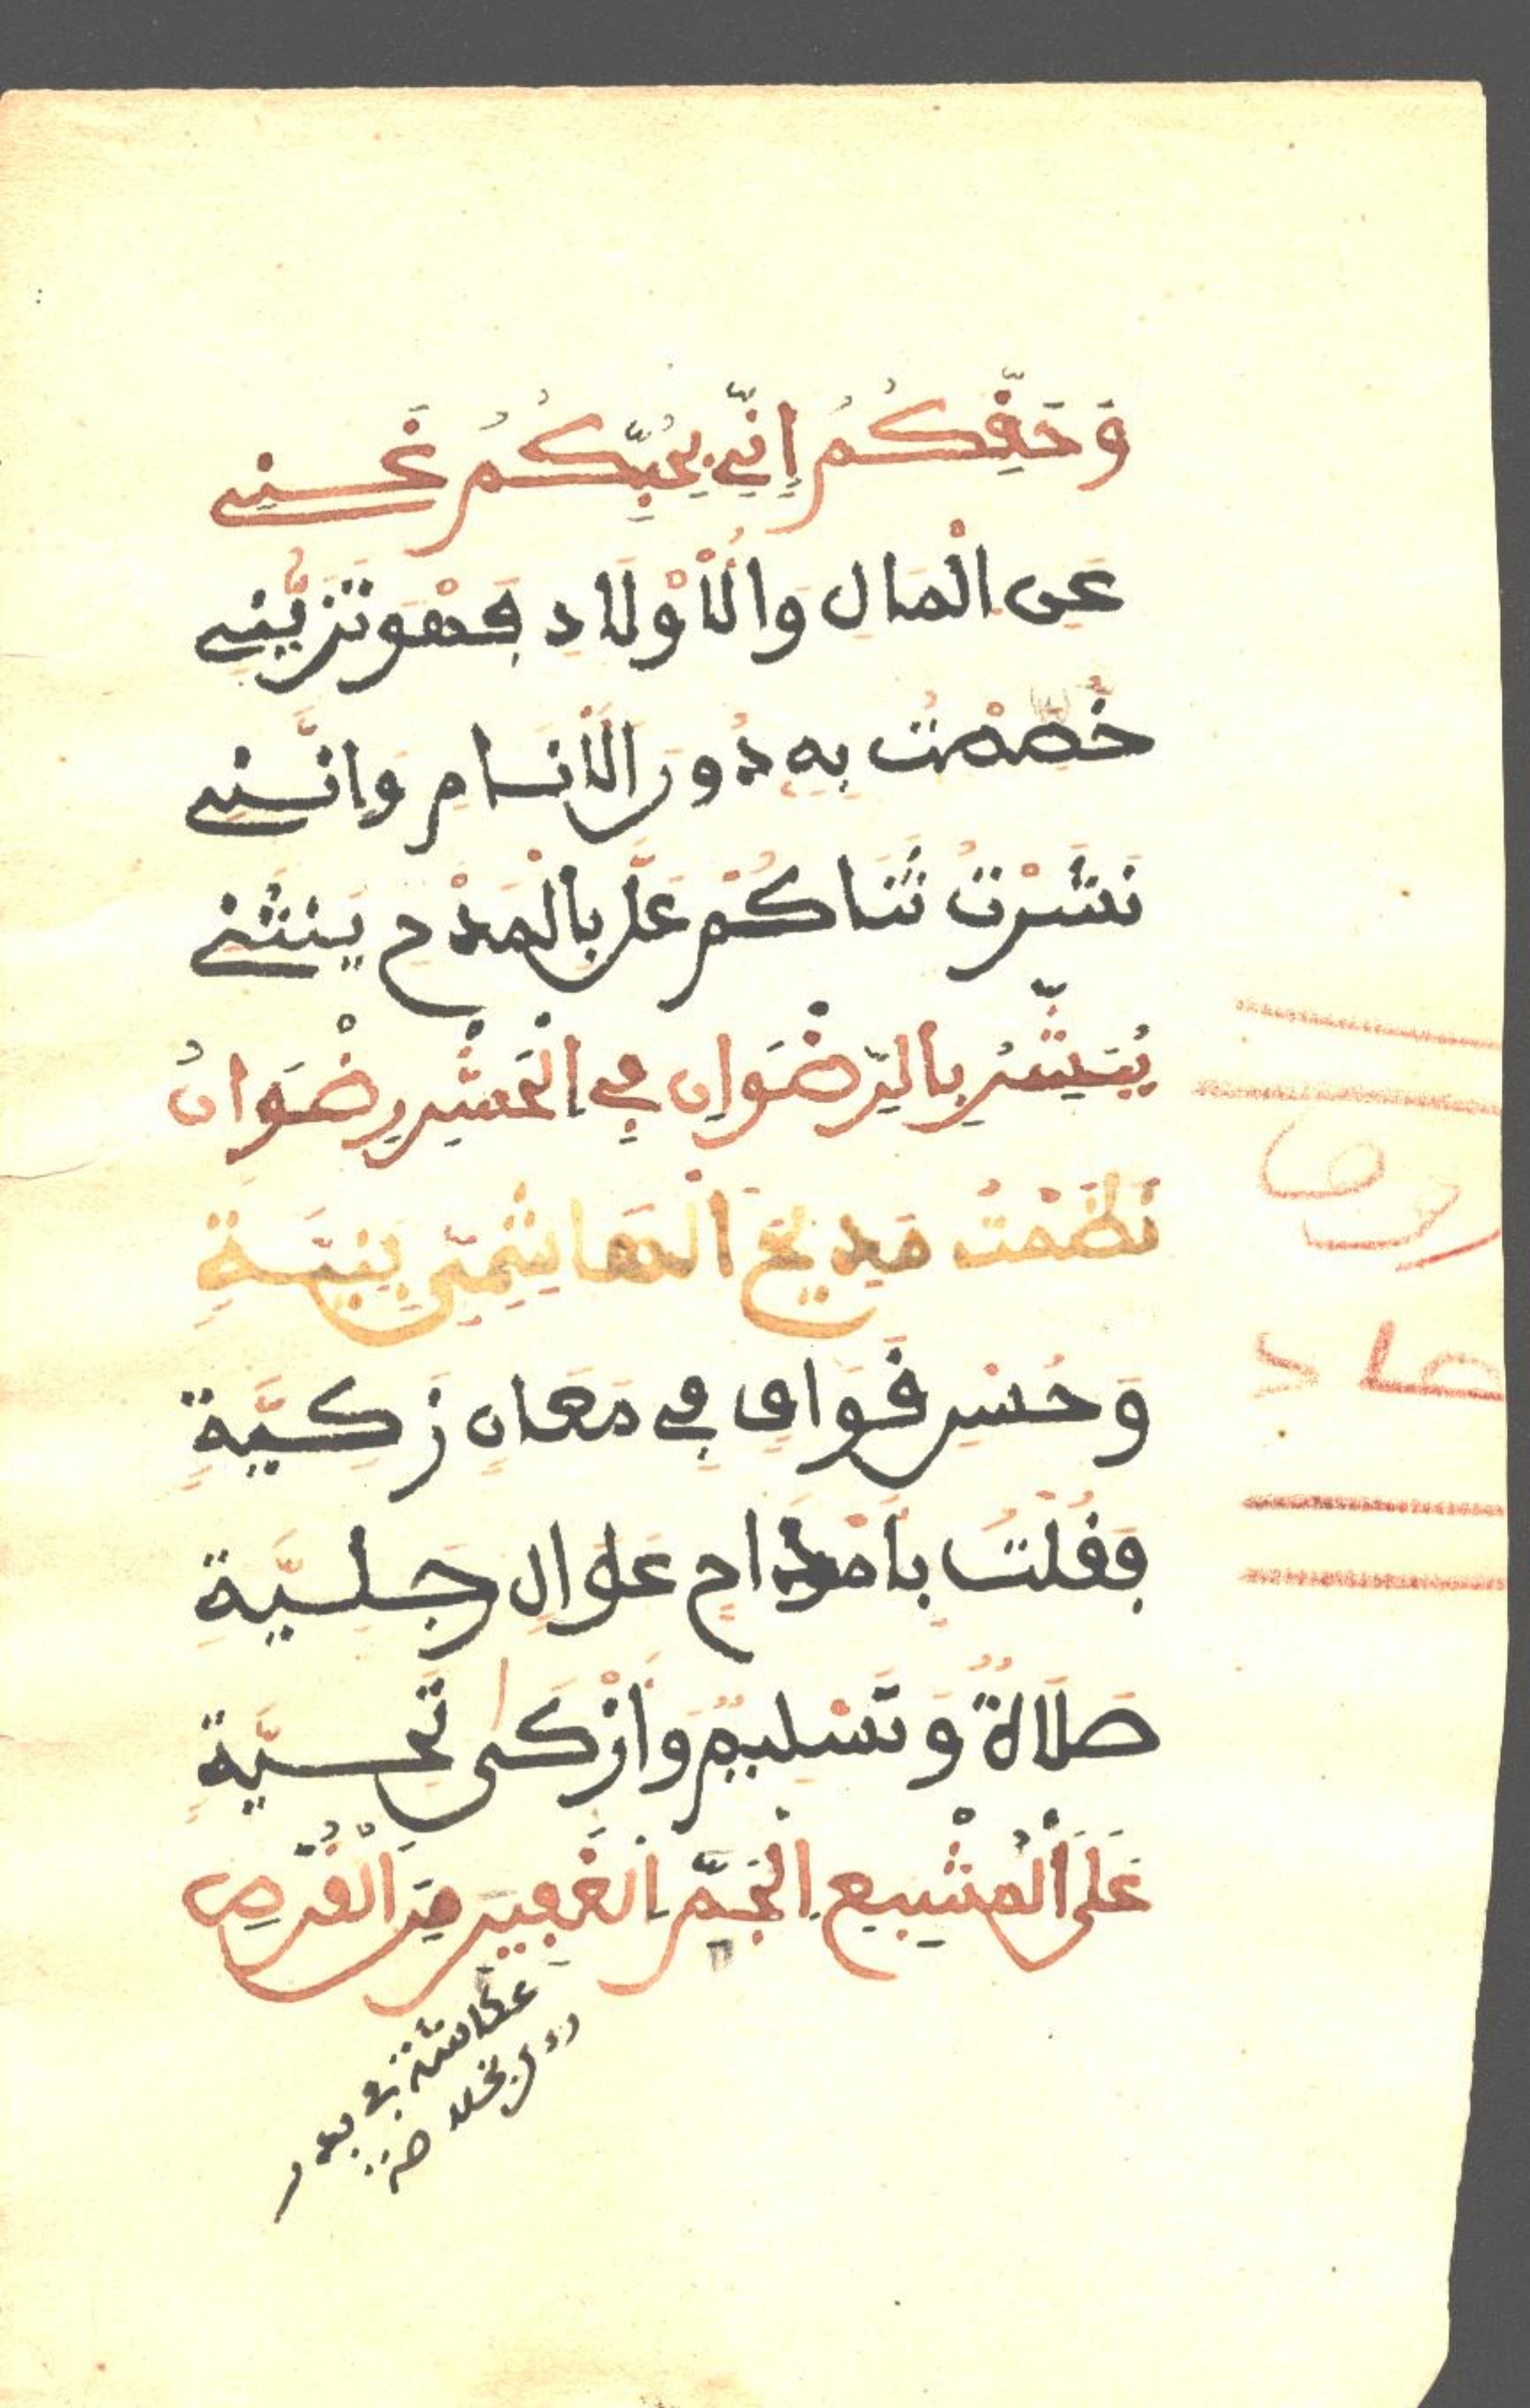 وَحَقِّكُمُ إِنِّي بِحُبِّكُمُ غَنِي
عَنِ الْمَالِ وَالْأَوْلَادِ فَهْوَ تَزَيُّنِي
خُصِّصْتُ بِهِ دُونَ الْأَنَامِ وَإِنَّنِي
نَشَرْتُ ثَنَاكُمْ عَلَّ بِالْمَدْحِ يَنْثَنِي
يُبَشِّرُ بِالرِّضْوَانِ فِي الْحَشْرِ رِضْوَانُ
نَظَمْتُ مَدِيحَ الْهَاشِمِيِّ بِنِيَّةِ
وَحُسْنِ قَوَافٍ فِي مَعَانٍ زَكِيَّةٍ
فَقُلْتُ بِأَمْدَاحٍ عَوَالٍ جَلِيَّةِ
صَلَاةٌ وَتَسْلِيمٌ وَأَزْكَى تَحِيَّةٍ
عَلَى الْمُشْبِعِ الْجَمَّ الْغَفِيرَ مِنَ الْقُرْصِ
عكاشة في بدر
صاد